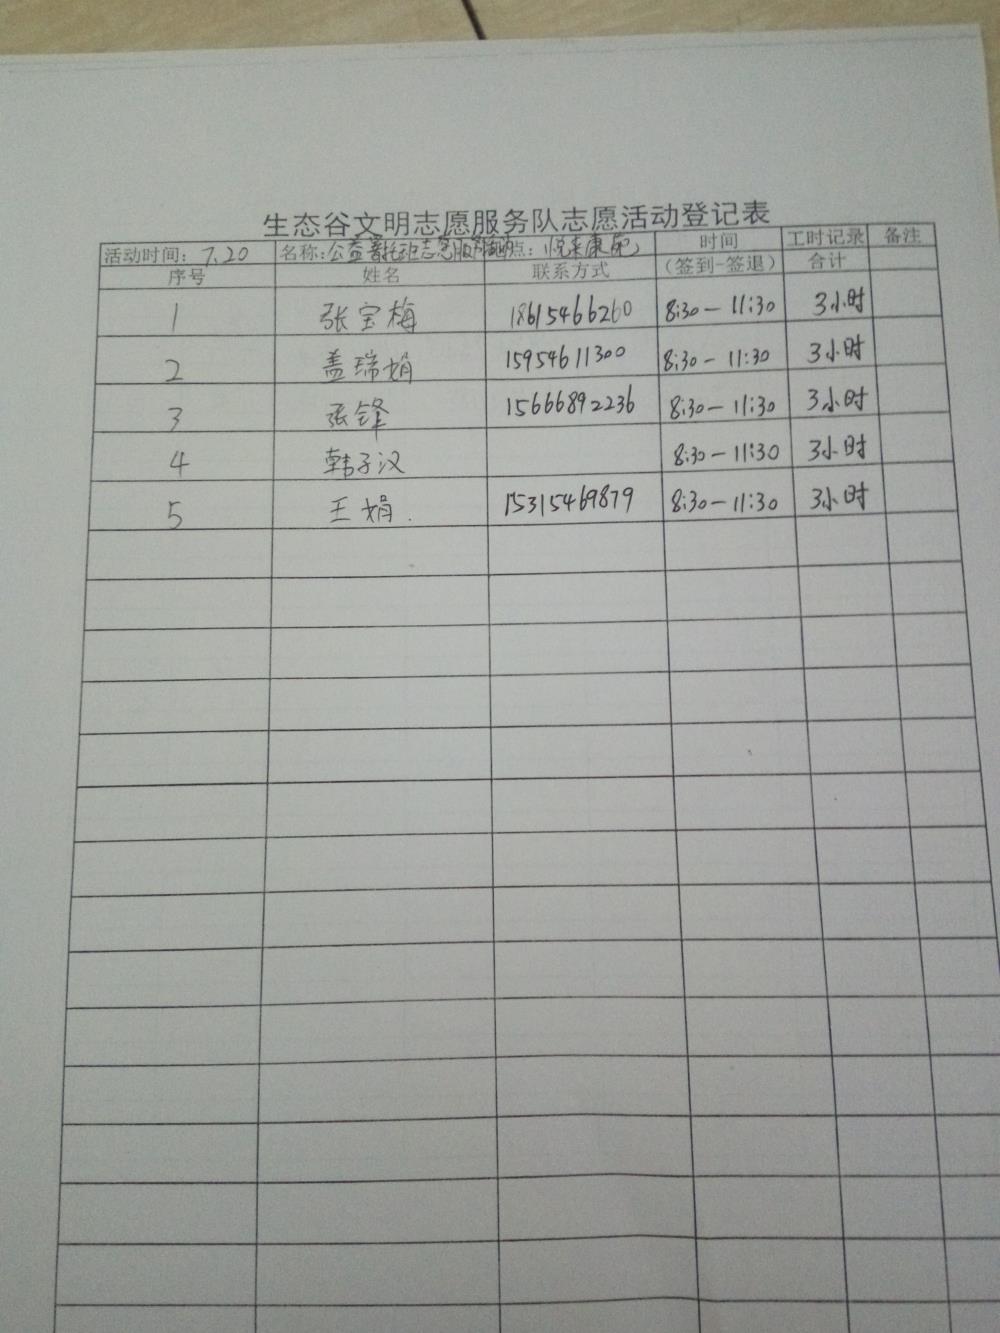 生态谷文明志愿服务队志愿活动登记表
活动时间: 7.20 名称:公益暑托班志愿服务 点: 时间 工时记录 备注
序号 姓名 联系方式 (签到-签退) 合计
1 张宝梅 18615466260 8:30-11:30 3小时
2 盖瑞娟 15954611300 8:30-11:30 3小时
3 张锋 15666892236 8:30-11:30 3小时
4 韩子汉 8:30-11:30 3小时
5 王娟. 15315469879 8:30-11:30 3小时